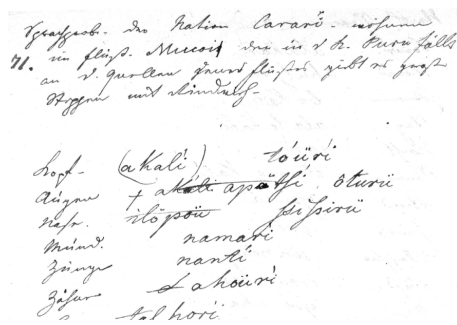 Sprachprobe. der Nation Carari. wohnen
71. im fluß. Mucoin der in d R. Puru fällt
an d. Quellen dieses flußes giebt es große
Steppen mit Rindvieh-
Kopf- (akali) tóüri
Augen + akali apöthí ôturü
Nase. ilöpöü
Mund. namari
Zunge nantí
Zähne ahoüri
tal hori